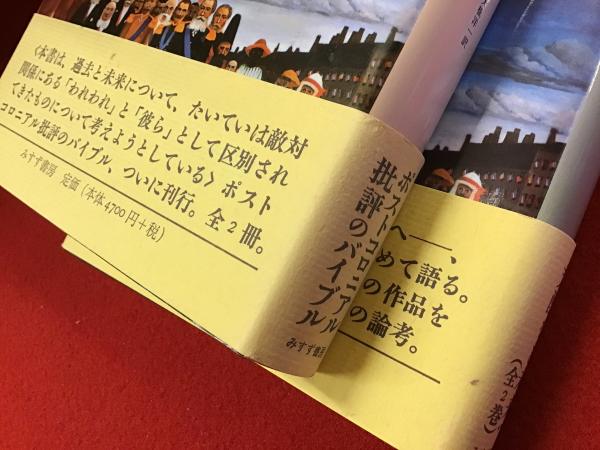 〈本書は、過去と未来について、たいていは敵対
関係にある「われわれ」と「彼ら」として区別され
てきたものについて考えようとしている〉ポスト
コロニアル批評のバイブル、ついに刊行。全2冊。
みすず書房 定価(本体4700円+税)
ポストコロニアル
批評のバイブル
みすず書房
へ――、
めて語る。
の作品を
の論考。
(全2巻)